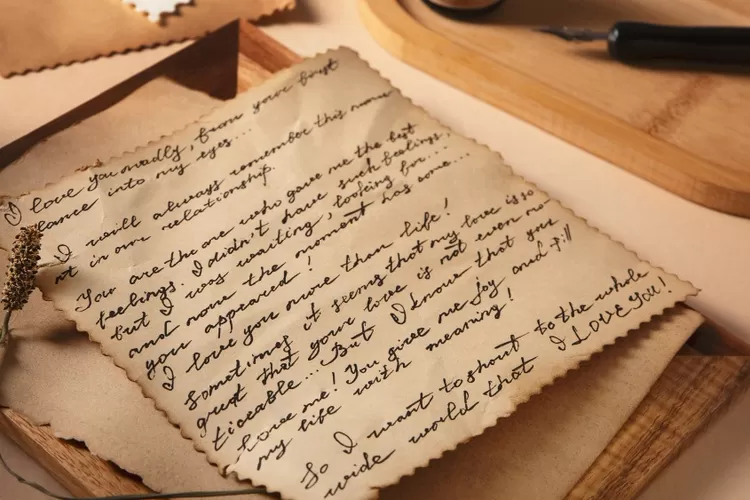 I love you madly, from your first
glance into my eyes...
I will always remember this mome
nt in our relationship.
You are the one who gave me the best
feelings. I didn't have such feelings,
but I was waiting, looking for...
and none the moment has come...
you appeared!
I love you more than life!
Sometimes it seems that my love is so
great that your love is not even no
ticeable... But I know that you
love me! You give me joy and fill
my life with meaning!
So I want to shout to the whole
wide world that I LOVE YOU!